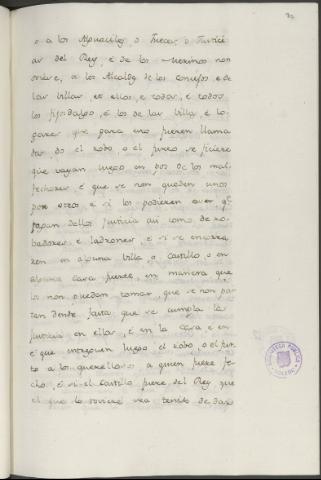 o a los Alguaciles, o Jueces, o Justici
as del Rey, é de los Merinos non
oviere, a los Alcaldes de los concejos, é de
las villas, et ellos, é todos, é todos
los fijosdalgo, é los de las villas, é lo-
gares que para eso fueren llama
dos, do el robo, o el furto se ficiere
que vayan luego en pos de los mal-
fechores é que se non queden unos
por otros é si los podieren aver que
fagan dellos justicia asi como de ro-
badores, é ladrones, é si se encerra-
ren en alguna villa, o castillo o en
alguna casa fuerte, en manera que
los non puedan tomar, que se non par
tan dende, fasta que se cumpla la
justicia en ellos, é en la casa é en
é que entreguen luego el robo, o el fur
to a los querellosos, a quien fuere fe-
cho, é si el castillo fuere del Rey que
el que lo toviere sea tenido de dar